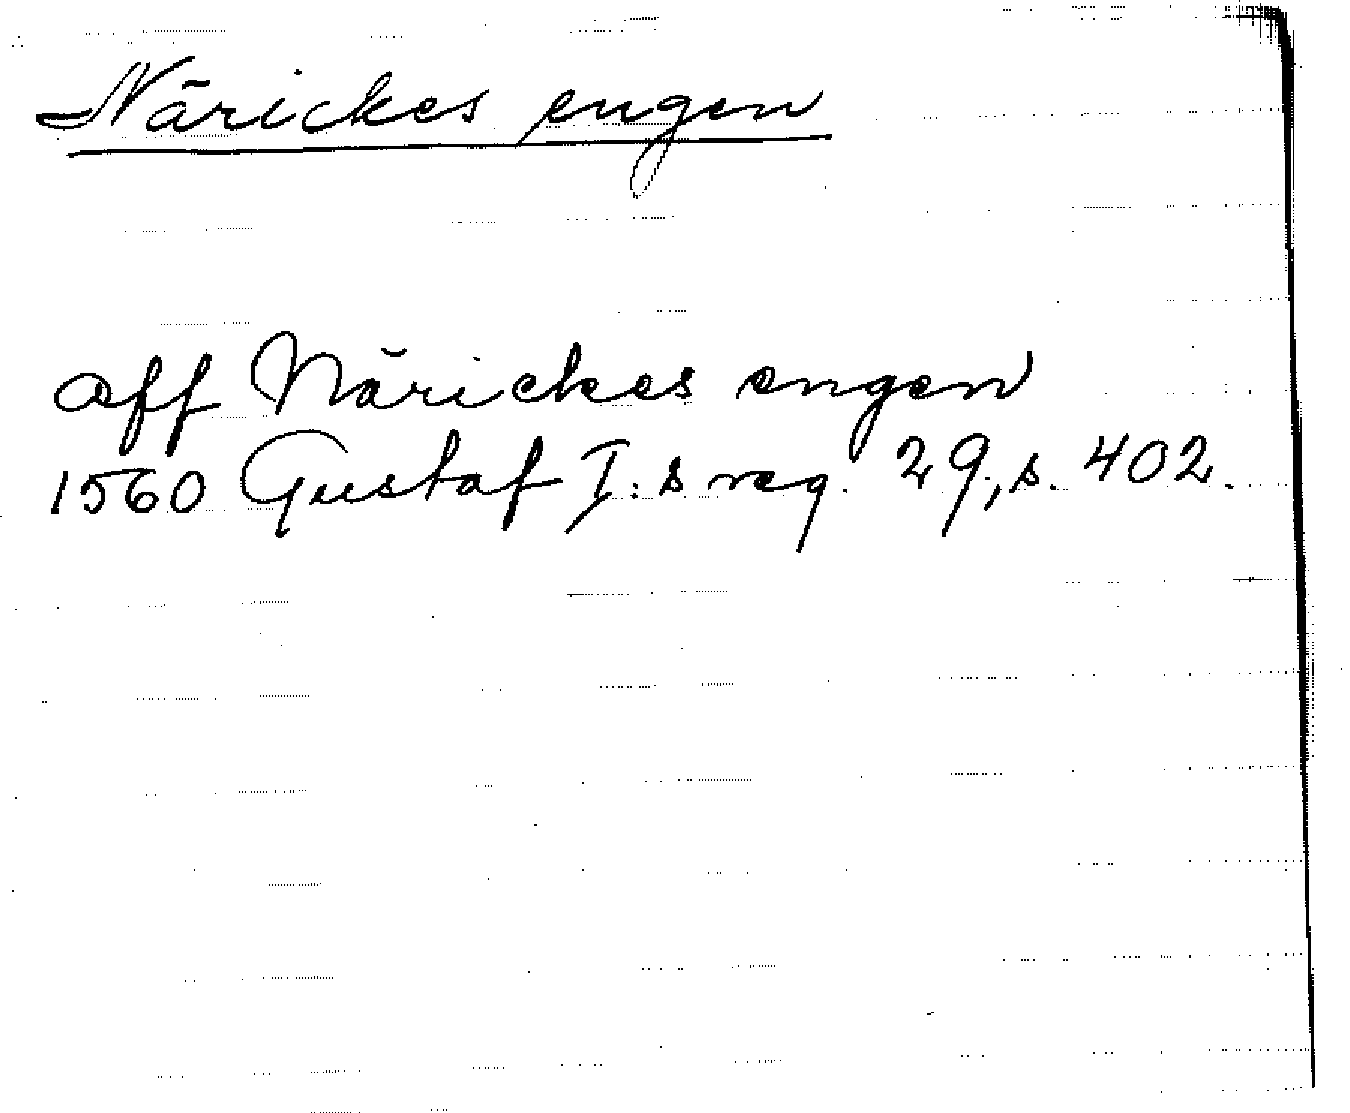 Närickes engen
aff Närickes engen
1560 Gustaf I:s reg. 29, s. 402.